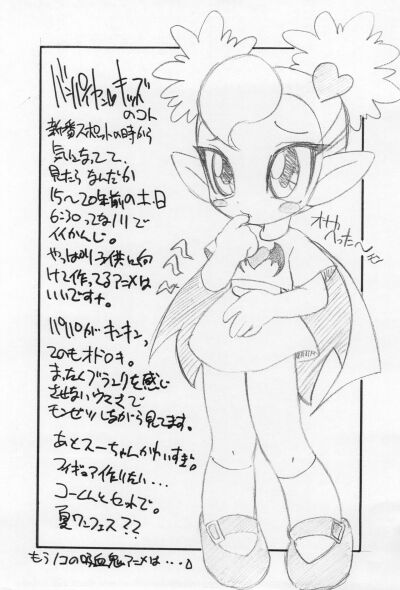 バンパイヤン・キッズ
のコト
新番スポットの時から
気になってて、
見たらなんだか
15〜20年前の土日
6:30ってカンジで
イイかんじ。
やっぱり子供に向
けて作ってるアニメは
いいですナ。
パパの声が
てのもオドロキ。
まったくブランクを感じ
させないウマさで
モンゼツしながら見てます。
あとスーちゃんかわいすぎ。
フィギュア作りたい・・・
コーくんとセットで。
夏ワンフェス??
もう1コの吸血鬼アニメは・・・
オナカ
へった〜